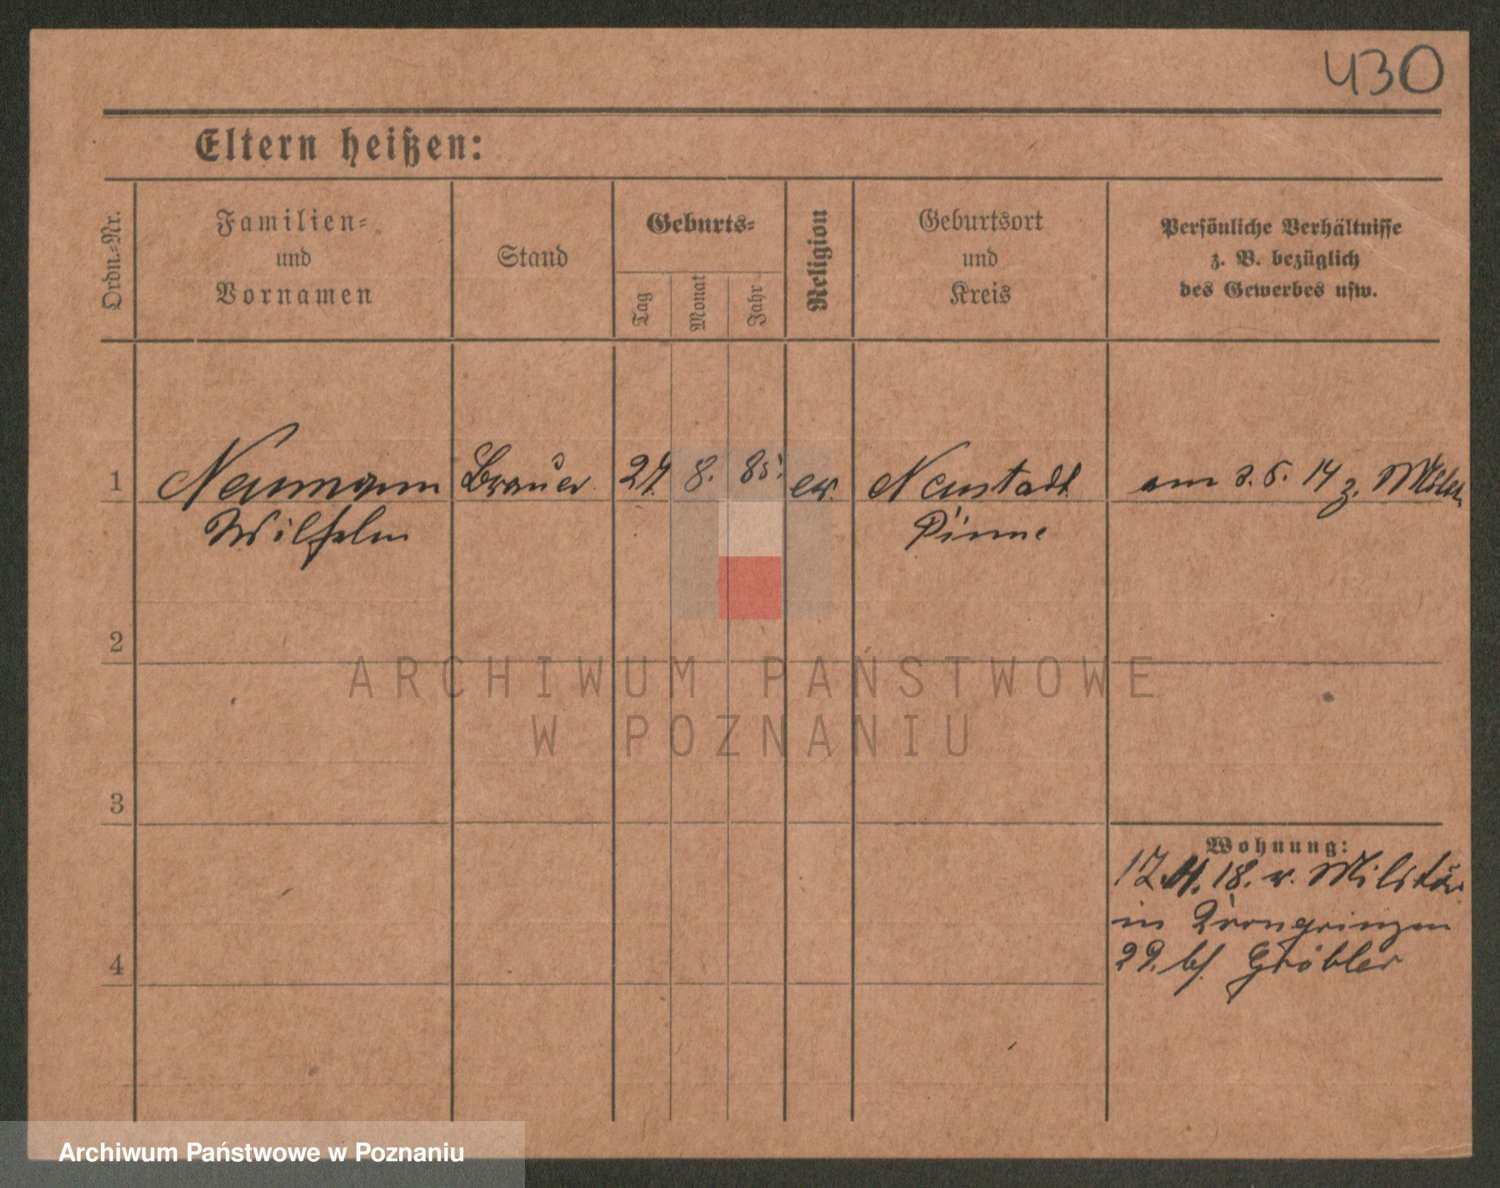 430
Eltern heißen:
Ordn.=Nr.
Familien=
und
Vornamen
Stand
Geburts=
Tag
Monat
Jahr
Religion
Geburtsort
und
Kreis
Persönliche Verhältnisse
z. B. bezüglich
des Gewerbes usw.
1 Neumann Brauer 27. 8. 85. ev. Neustadt am 3. 5. 14 z.
Wilhelm Pinne
2
ARCHIWUM PAŃSTWOWE
W POZNANIU
3
Wohnung:
18. v. Militär
in
4
22. bf. Gröbler
Archiwum Państwowe w Poznaniu